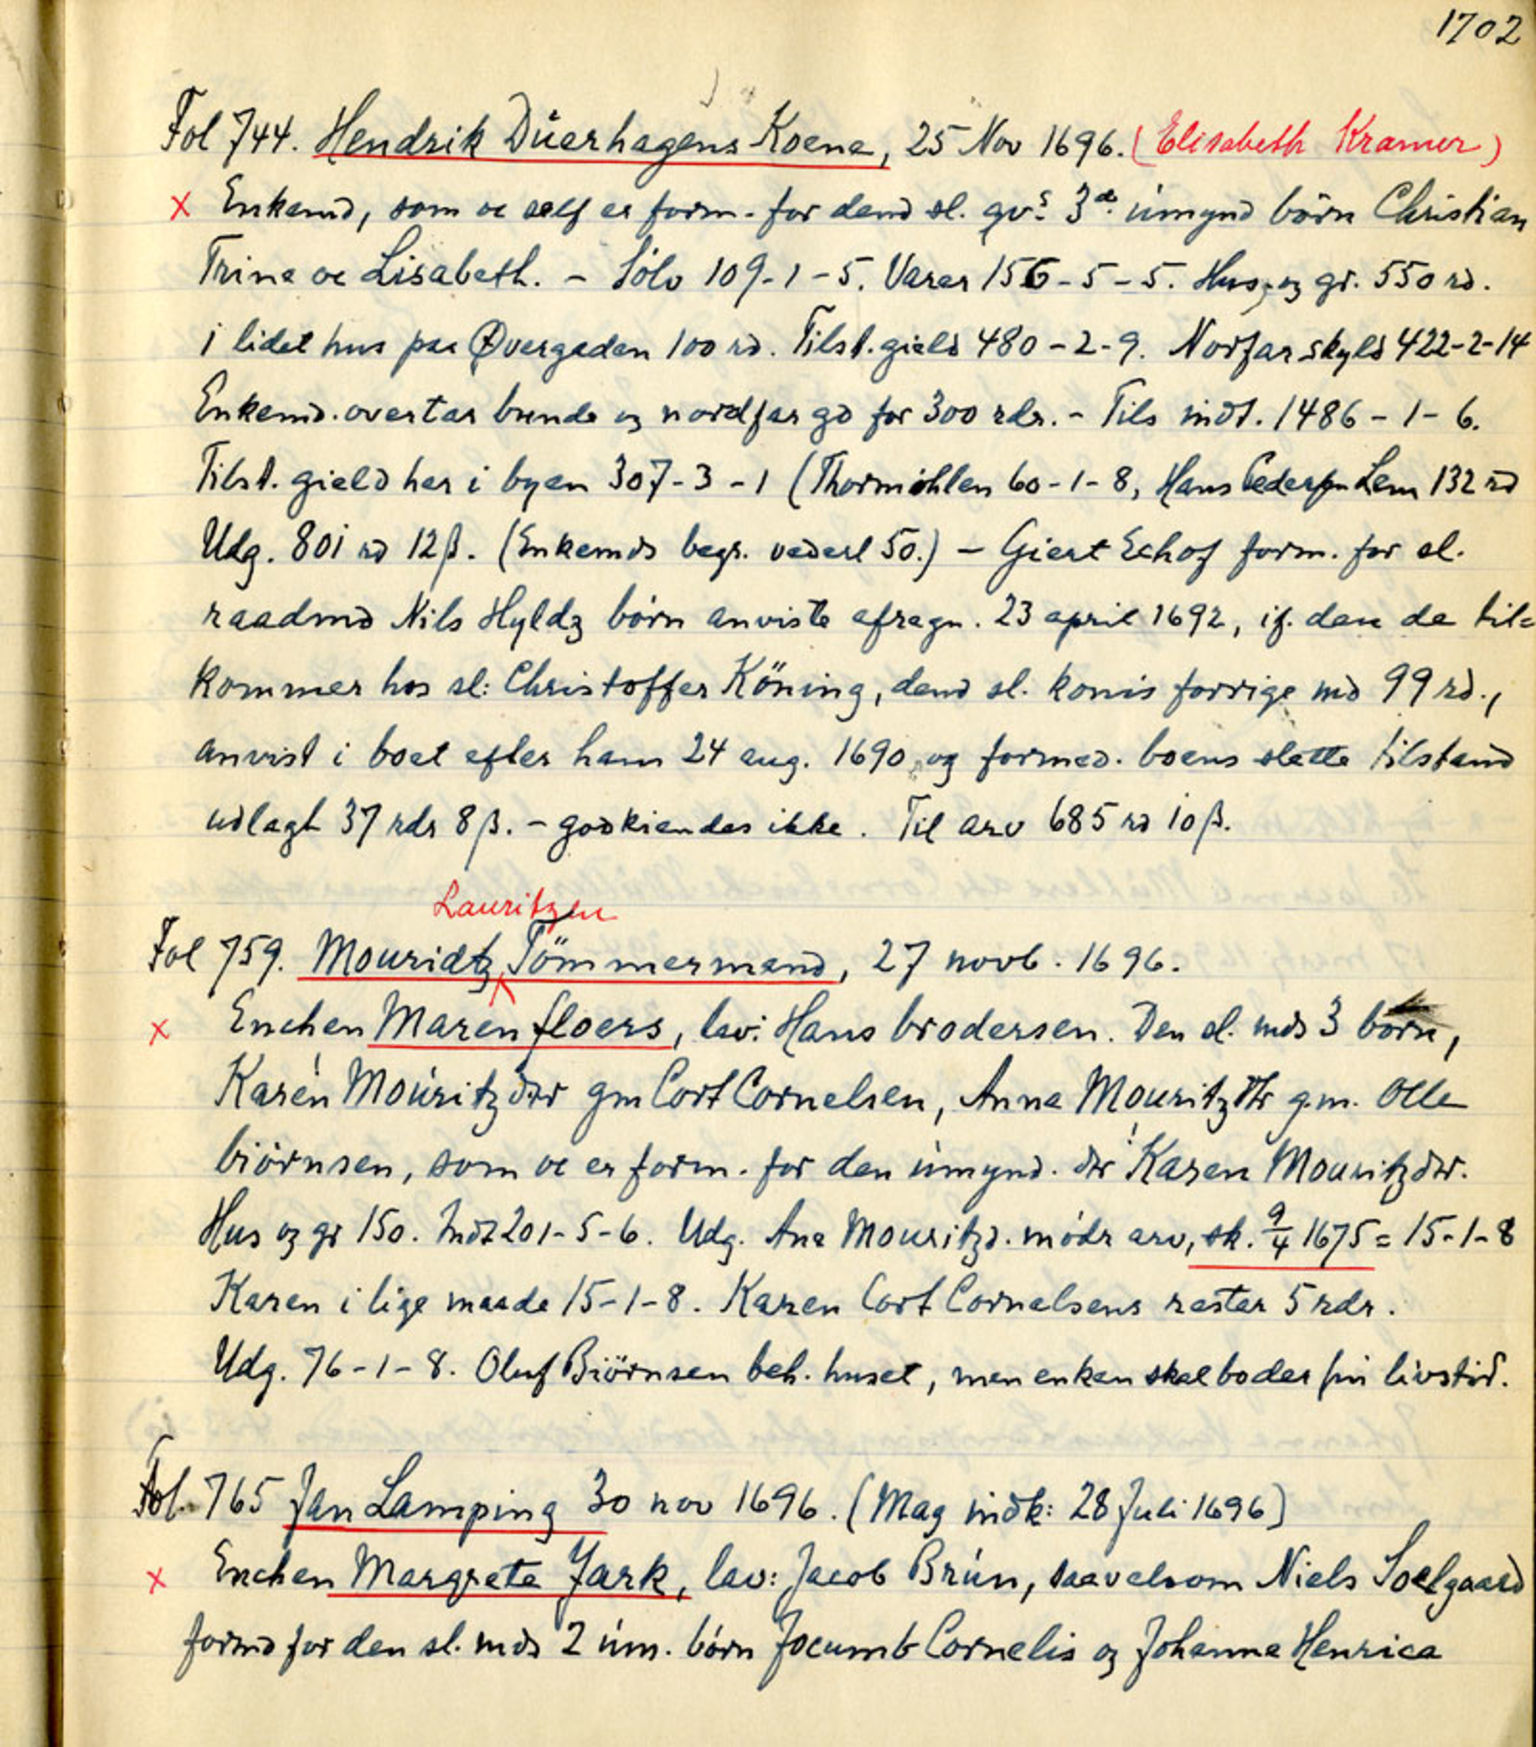 1702
Fol 744. Hendrik Düerhagens Koene, 25 Nov 1696. (Elisabeth Kramer)
x Enkemd, som oc self er form. for dend sl. qvs 3de úmynd börn Christian
Trine oc Lisabeth. – Sölv 109-1-5. Varer 156-5-5. Hus og gr. 550 rd.
i lidet hus paa Øvergaden 100 rd. Tilst. gield 480-2-9. Norfar skyld 422-2-14
Enkemd. overtar bunde og nordfar gd for 300 rdr. – Tils indt. 1486-1-6.
Tilst. gield her i byen 307-3-1 (Thormöhlen 60-1-8, Hans Pedersøn Lem 132 rd
Udg. 801 rd 12 β. (Enkemds begr. vederl 50.) – Giert Echof form. for sl.
raadmd Nils Hyldz börn anviste afregn. 23 april 1692, if. den de til=
kommer hos sl: Christoffer Köning, dend sl. konis forrige md 99 rd.,
anvist i boet efter ham 24 aug. 1690 og formed. boens slette tilstand
udlagt 37 rdr 8 β. – godkiendes ikke. Til arv 685 rd 10 β.
Lauritzen
Fol 759. Mouridtz Tömmermand, 27 novb. 1696.
x Enchen Maren floers, lav: Hans brodersen. Den sl. mds 3 börn,
Karen Mouritzdtr gm Cort Cornelsen, Anna Mouritzdtr g.m. Olle
biörnsen, som oc er form. for den úmynd. dtr Karen Mouritzdtr.
Hus og gr 150. Indt 201-5-6. Udg. Ane Mouritzd. mödr arv, sk. 9/4 1675 = 15-1-8
Karen i lige maade 15-1-8. Karen Cort Cornelsens rester 5 rdr.
Udg. 76-1-8. Oluf Biörnsen beh. huset, men enken skal boder sin livstid.
Fol. 765 Jan Lamping 30 nov 1696. (Mag indk: 28 Juli 1696)
x Enchen Margrete Jark, lav: Jacob Brún, saavelsom Niels Soelgaard
formd for den sl. mds 2 úm. börn Jocumb Cornelis og Johanne Henrica